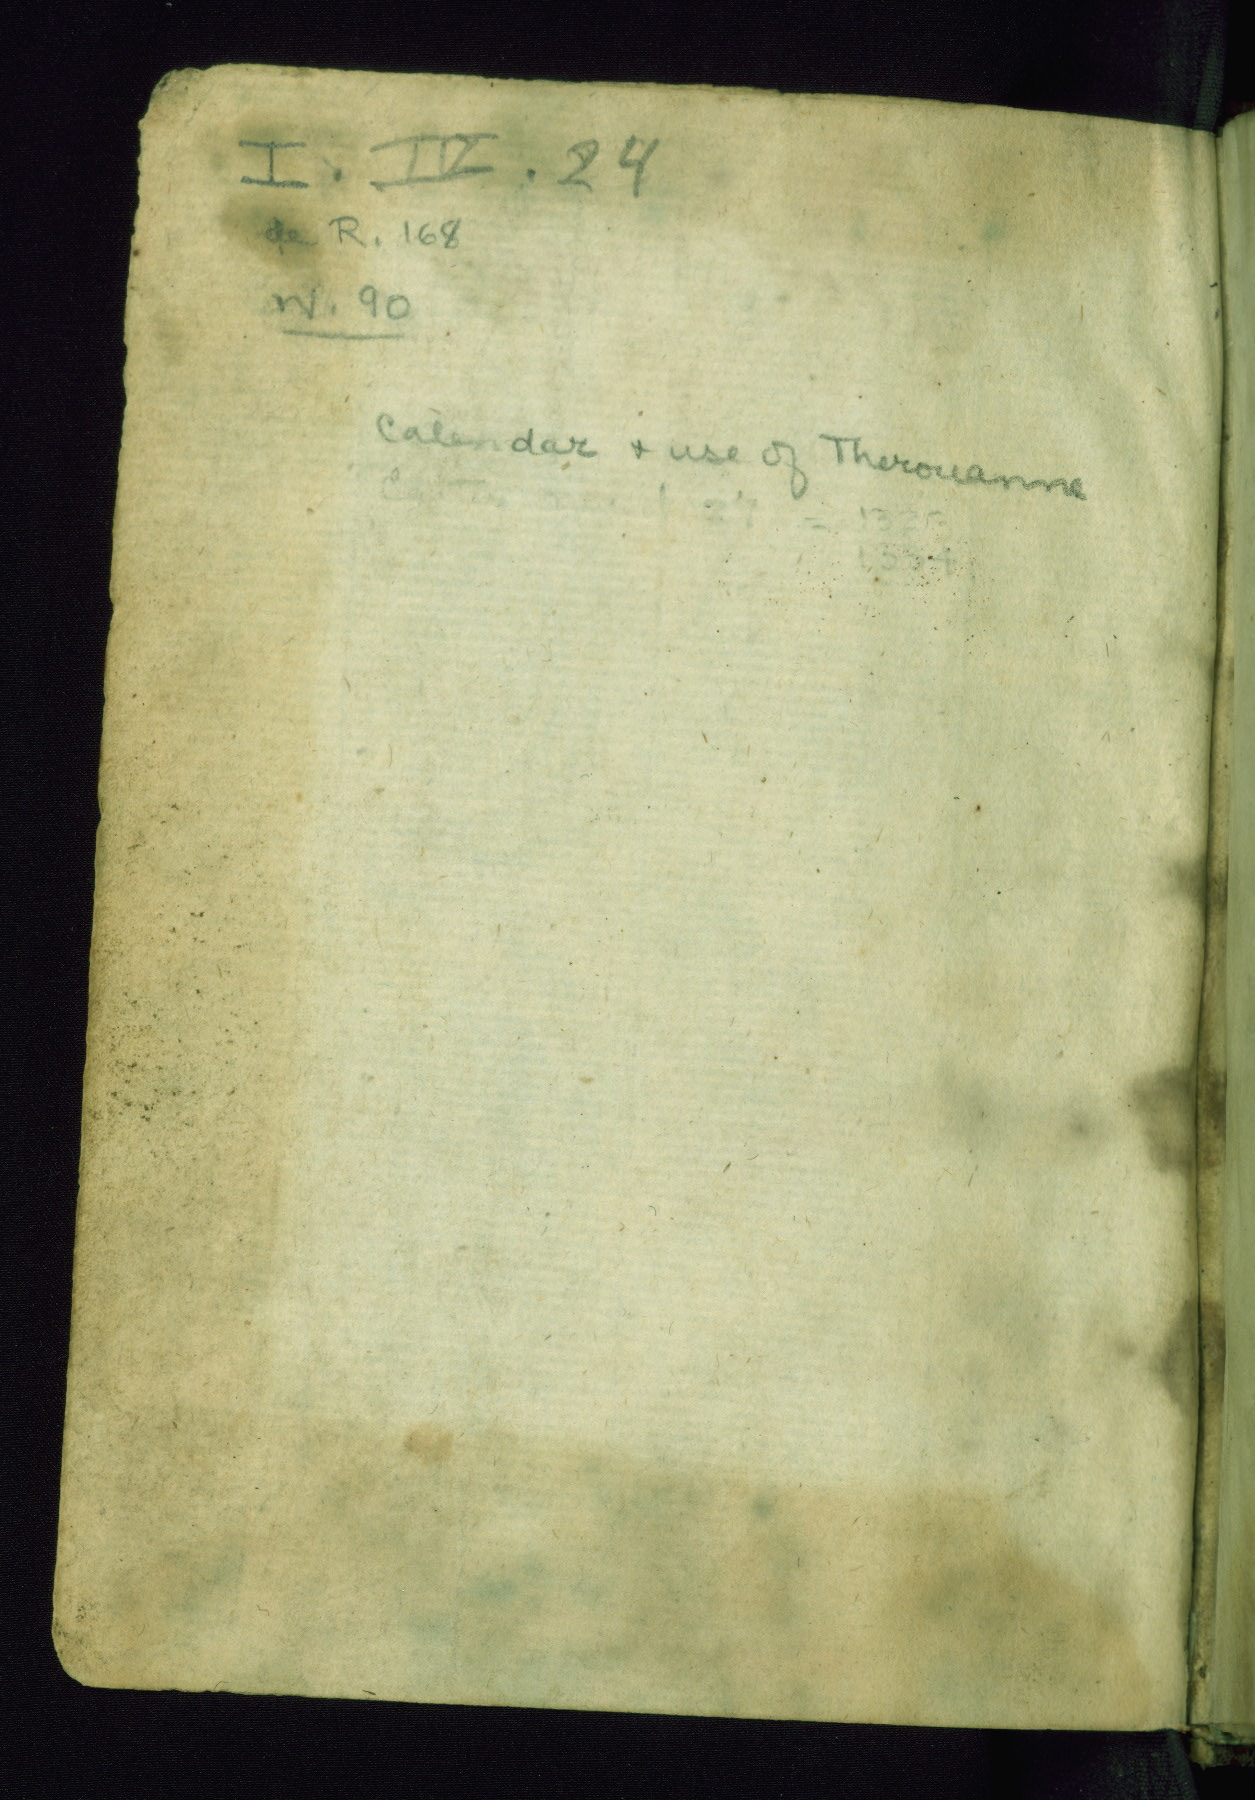 I. IV. 24
de R. 168
W. 90
Calendar + use of Therouanne
27 =